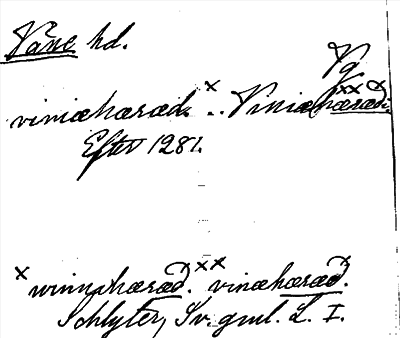 Väne hd.
Vg
viniæhæræd. x .. Viniæhæræd. xx
Efter 1281.
x winnæhæræd. xx vinæhæræd.
Schlyter, Sv. gml. L. I.